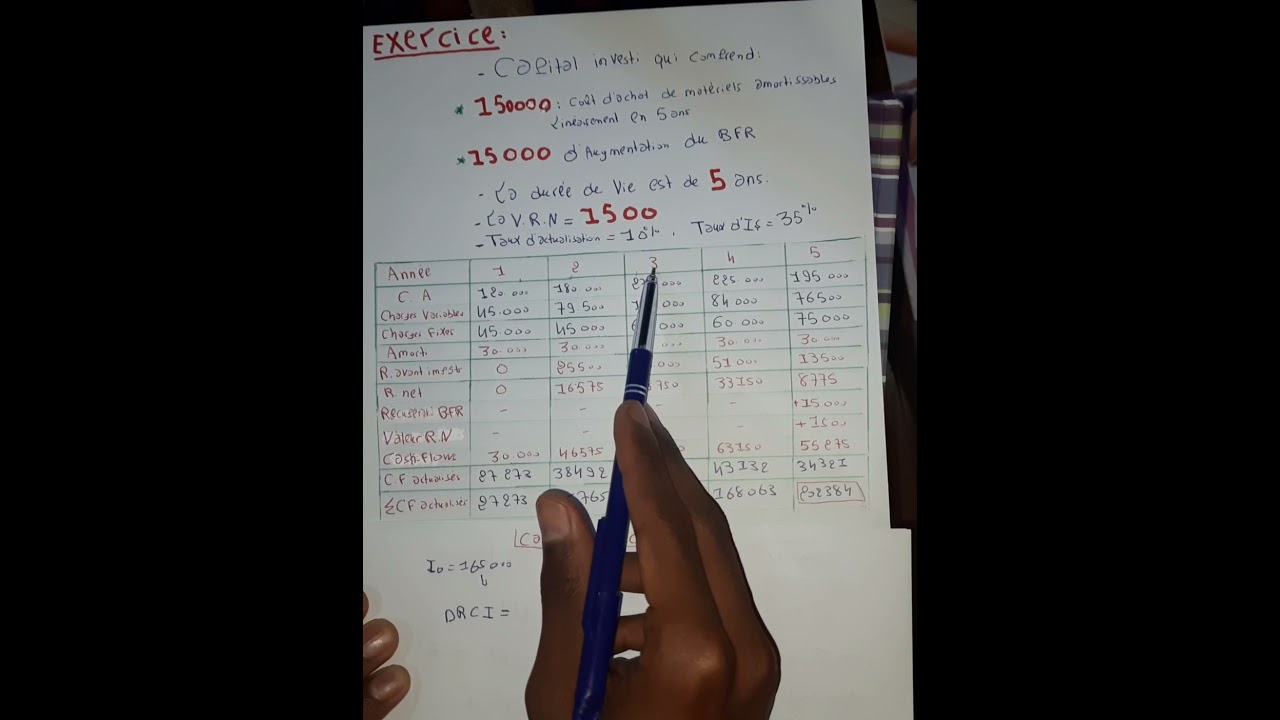 EXERCICE:
- Capital investi qui comprend:
* 150000 : Coût d'achat de matériels amortissables
Linéairement en 5 ans
* 15000 d'Augmentation du BFR
- La durée de Vie est de 5 ans.
- La V.R.N = 1500
- Taux d'actualisation = 10% , Taux d'IS = 35%
Année 1 2 3 4 5
C.A 120.000 180.000 000 225.000 195 000
Charges Variables 45.000 79.500 000 84 000 76500
Charges Fixes 45.000 45 000 000 60 000 75000
Amort. 30.000 30.000 30.000 30.000
R.avant impôt 0 25500 000 51000 13500
R.net 0 16575 750 33150 8775
BFR - - - - +15000
Valeur R.N - - - +1500
Cash-flows 30.000 46575 63150 55275
C.F actualisés 27273 38492 43132 34321
ΣCF actualisés 27273 765 168063 202384
I0 = 165000
DRCI =